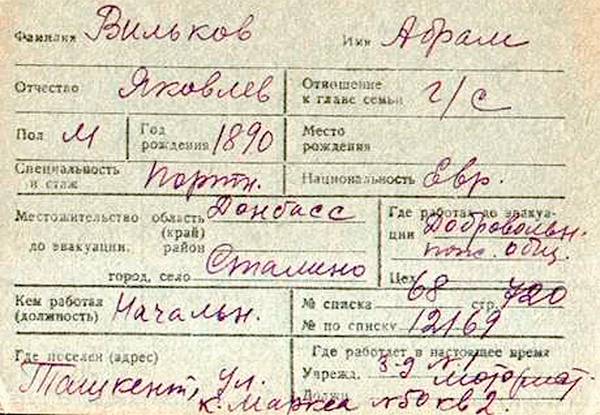 Фамилия Вильков Имя Абрам
Отчество Яковлев Отношение к главе семьи г/с
Пол М Год рождения 1890 Место рождения
Специальность и стаж Портн. Национальность Евр.
Местожительство область (край) район Донбасс
до эвакуации.
город, село Сталино
Где работал до эвакуации Добровольн. пож. общ.
Цех
Кем работал (должность) Начальн.
№ списка 68 стр. 720
№ по списку 12169
Где поселен (адрес) Ташкент, ул. К. Маркса № 50 кв 2
Где работает в настоящее время
Учрежд. З-д № 1
Должн.